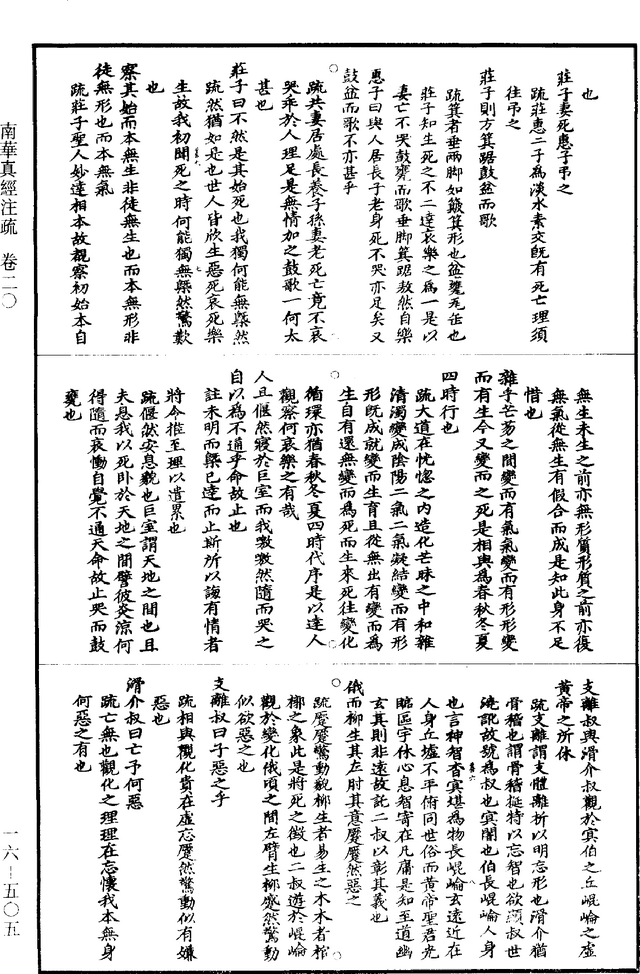 也
莊子妻死惠子弔之
疏莊惠二子為淡水素交既有死亡理須
往弔之
莊子則方箕踞鼓盆而歌
疏箕者垂兩脚如簸箕形也盆甕瓦缶也
莊子知生死之不二達哀樂之為一是以
妻亡不哭鼓甕而歌垂脚箕踞敖然自樂
惠子曰與人居長子老身死不哭亦足矣又
鼓盆而歌不亦甚乎
疏共妻居處長養子孫妻老死亡竟不哀
哭乖於人理足是無情加之鼓歌一何太
甚也
莊子曰不然是其始死也我獨何能無槩然
疏然猶如是也世人皆欣生惡死哀死樂
生故我初聞死之時何能獨無槩然驚歎
也
察其始而本無生非徒無生也而本無形非
徒無形也而本無氣
疏莊子聖人妙達根本故覩察初始本自
無生未生之前亦無形質形質之前亦復
無氣從無生有假合而成是知此身不足
惜也
雜乎芒芴之間變而有氣氣變而有形形變
而有生今又變而之死是相與為春秋冬夏
四時行也
疏大道在恍惚之內造化芒昧之中和雜
清濁變成陰陽二氣二氣凝結變而有形
形既成就變而生育且從無出有變而為
生自有還無變而為死而生來死往變化
循環亦猶春秋冬夏四時代序是以達人
觀察何哀樂之有哉
人且偃然寢於巨室而我噭噭然隨而哭之
自以為不通乎命故止也
註未明而槩已達而止斯所以誨有情者
將令推至理以遣累也
疏偃然安息貌也巨室謂天地之間也且
夫息我以死卧於天地之間譬彼炎涼何
得隨而哀慟自覺不通天命故止哭而鼓
甕也
支離叔與滑介叔觀於冥伯之丘崐崘之虛
黃帝之所休
疏支離謂支體離析以明忘形也滑介猶
骨稽也謂骨稽挺特以忘智也欲顯叔世
澆訛故號為叔也冥闇也伯長崐崘人身
也言神智杳冥堪為物長崐崘玄遠近在
人身丘墟不平俯同世俗而黃帝聖君光
臨區宇休心息智寄在凡庸是知至道幽
玄其則非遠故託二叔以彰其義也
俄而柳生其左肘其意蹷蹷然惡之
疏蹷蹷驚動貌柳生者易生之木木者棺
槨之象此是將死之徵也二叔遊於崐崘
觀於變化俄頃之間左臂生柳蹷然驚動
似欲惡之也
支離叔曰子惡之乎
疏相與觀化貴在虛忘蹷然驚動似有嫌
惡也
滑介叔曰亡予何惡
疏亡無也觀化之理理在忘懷我本無身
何惡之有也
南華真經注疏 卷二〇
一六—五〇五